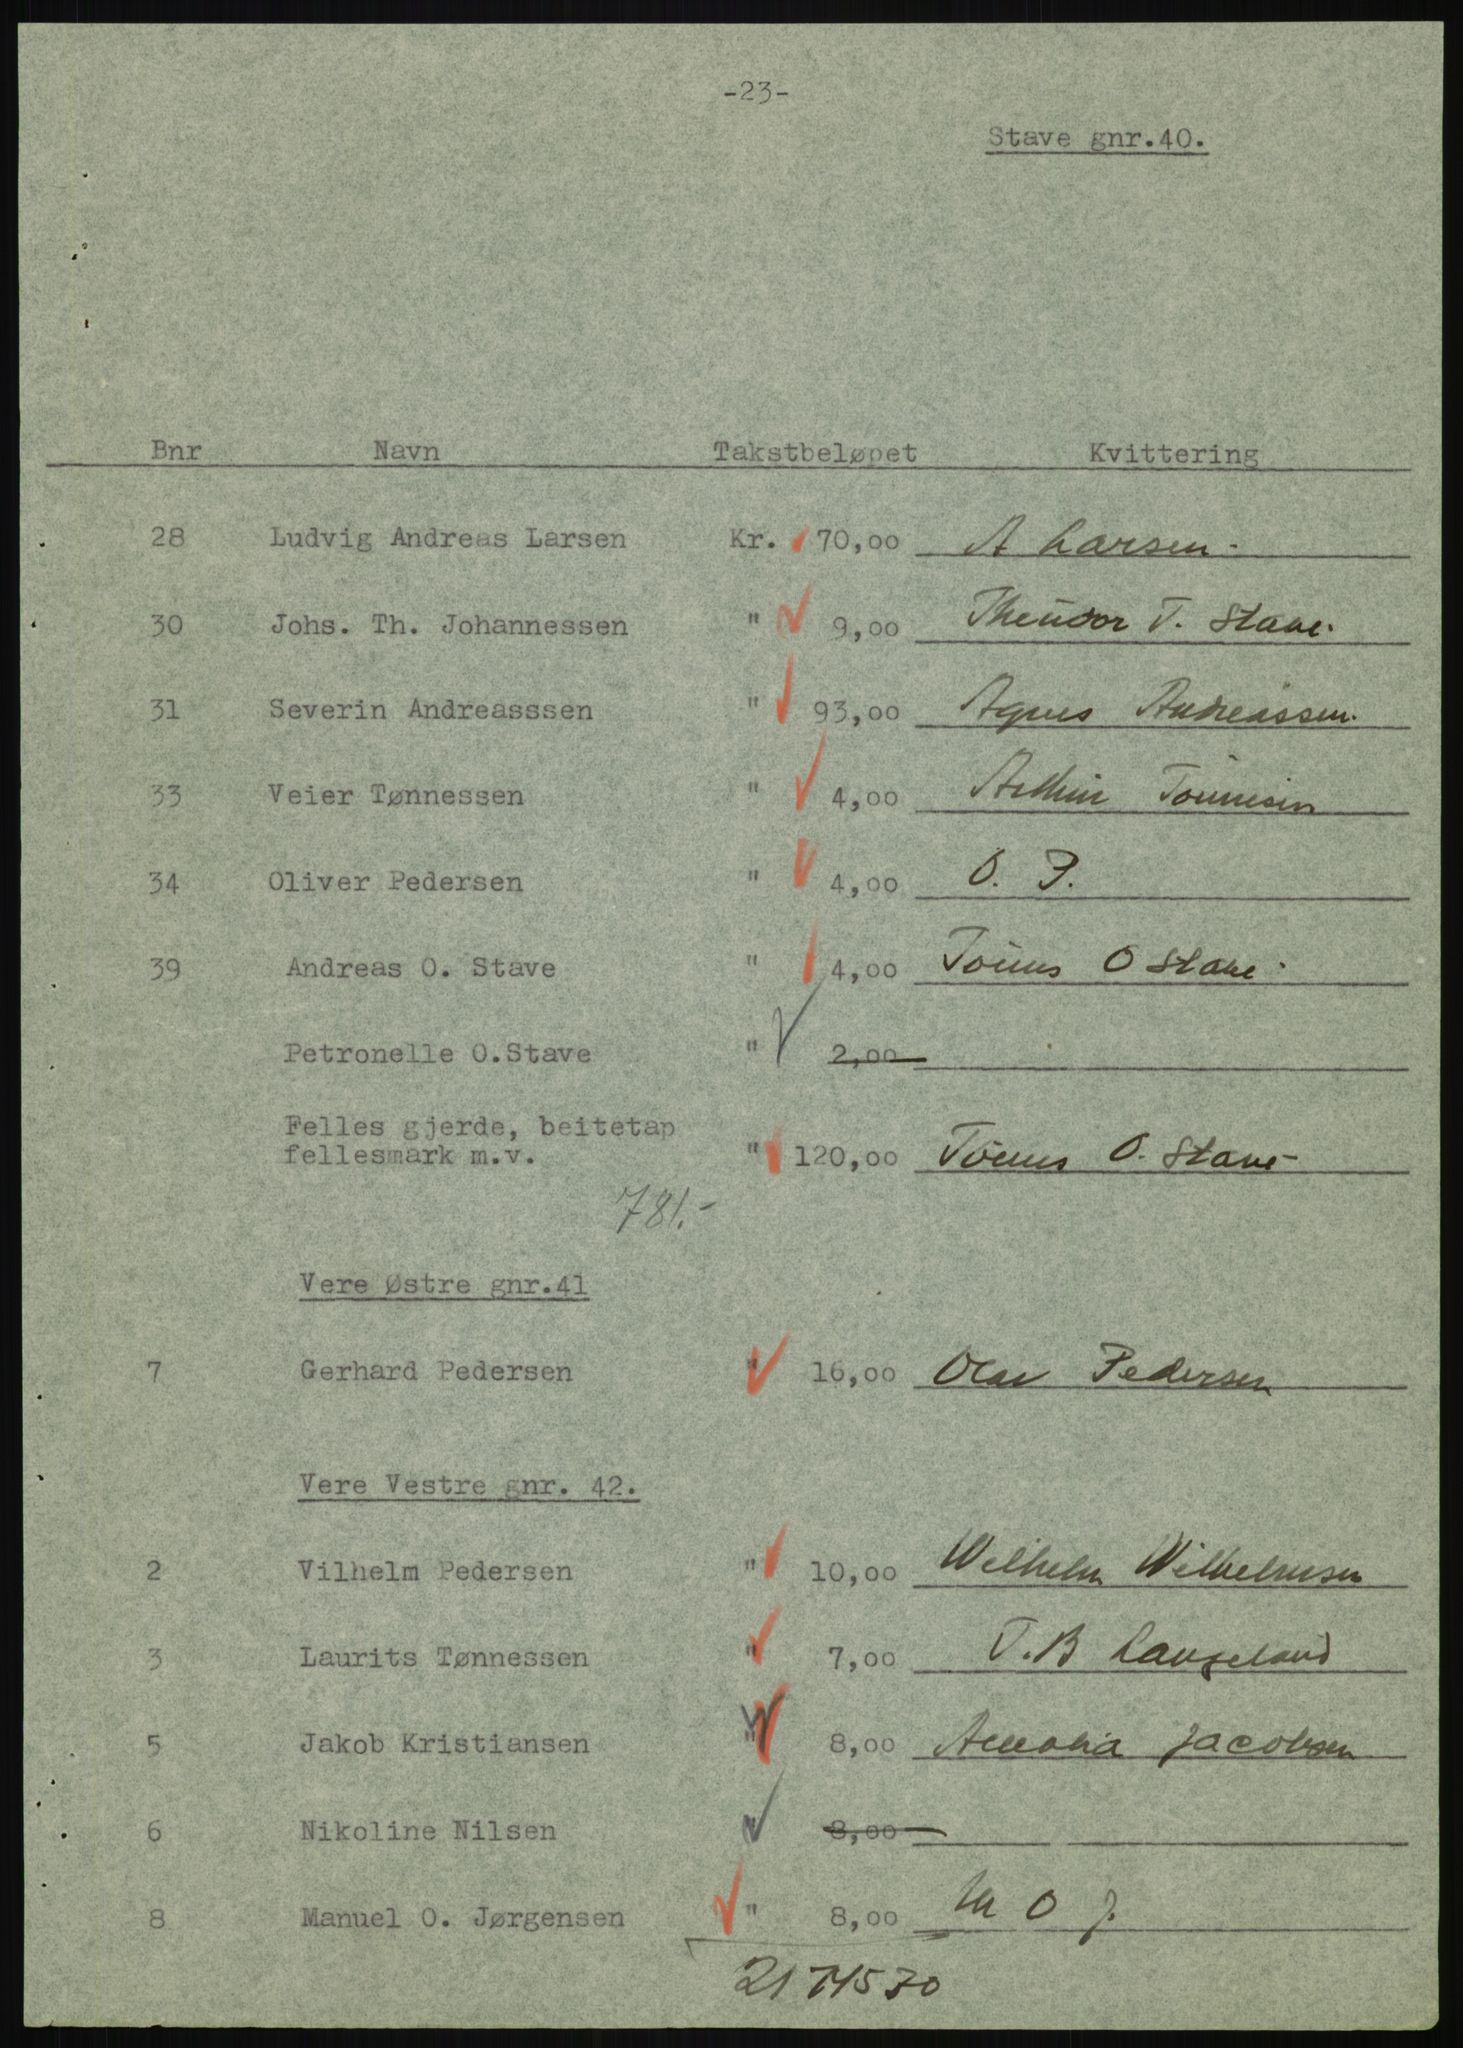 -23-
Stave gnr.40.
Bnr Navn Takstbeløpet Kvittering
28 Ludvig Andreas Larsen Kr. 70,00 A Larsen.
30 Johs. Th. Johannessen " 9,00 Theodor T. Stave.
31 Severin Andreasssen " 93,00 Agnes Andreassen.
33 Veier Tønnessen " 4,00
34 Oliver Pedersen " 4,00 O. P.
39 Andreas O. Stave " 4,00 O Stave.
Petronelle O.Stave " 2,00
Felles gjerde, beitetap
fellesmark m.v. " 120,00 O. Stave
781.-
Vere Østre gnr.41
7 Gerhard Pedersen " 16,00 Olav Pedersen
Vere Vestre gnr. 42.
2 Vilhelm Pedersen " 10,00 Wilhelm Wilhelmsen
3 Laurits Tønnessen " 7,00 T.B Langeland
5 Jakob Kristiansen " 8,00 Jacobsen
6 Nikoline Nilsen " 8,00
8 Manuel O. Jørgensen " 8,00 M O J.